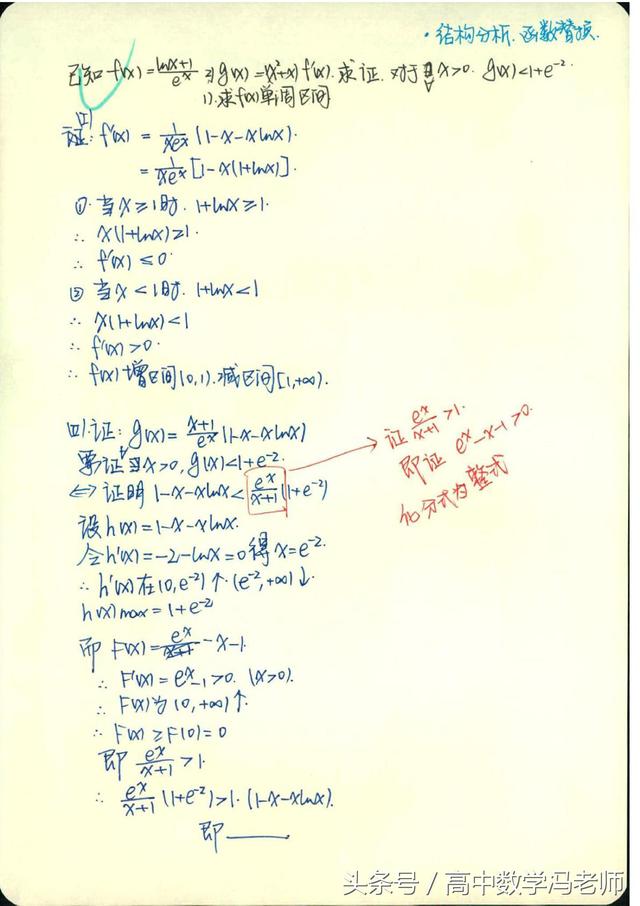 ·结构分析.函数替换.
已知 f(x)=\frac{lnx+1}{e^x} 且 g(x)=(x²+x)f'(x). 求证. 对于∀x>0. g(x)<1+e^{-2}.
1).求f(x)单调区间
(I)
证: f'(x) = \frac{1}{xe^x}(1-x-xlnx).
= \frac{1}{xe^x}[1-x(1+lnx)].
① 当x≥1时. 1+lnx≥1.
∴ x(1+lnx)≥1.
∴ f'(x)≤0
② 当x<1时. 1+lnx<1
∴ x(1+lnx)<1
∴ f'(x)>0.
∴ f(x)增区间(0,1).减区间[1,+∞).
(II).证: g(x)=\frac{x+1}{e^x}(1-x-xlnx)
要证∀x>0, g(x)<1+e^{-2}.
⇔ 证明 1-x-xlnx<\frac{e^x}{x+1}(1+e^{-2})
设h(x)=1-x-xlnx.
令h'(x)=-2-lnx=0得x=e^{-2}.
∴ h'(x)在(0,e^{-2})↑.(e^{-2},+∞)↓.
h(x)max=1+e^{-2}
而 F(x)=e^x-x-1.
∴ F'(x)=e^x-1>0. (x>0).
∴ F(x)为(0,+∞)↑.
∴ F(x)≥F(0)=0
即 \frac{e^x}{x+1}>1.
∴ \frac{e^x}{x+1}(1+e^{-2})>1·(1-x-xlnx).
即——
证 \frac{e^x}{x+1}>1.
即证 e^x-x-1>0.
化分式为整式
头条号 / 高中数学冯老师